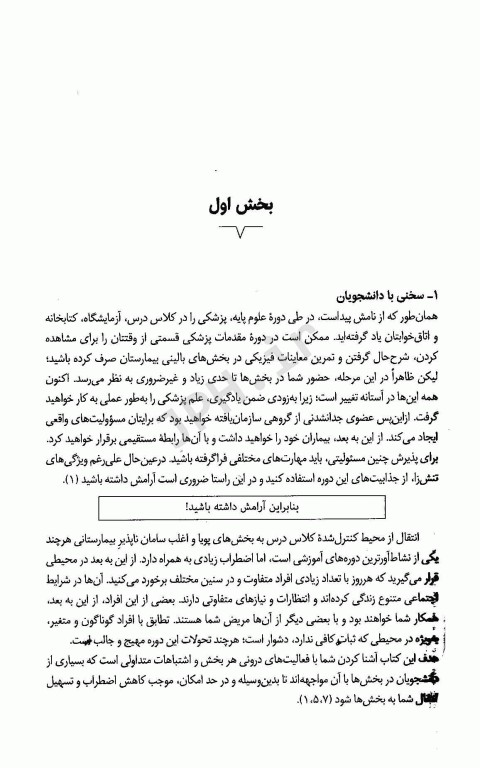 بخش اول
۱- سخنی با دانشجویان
همان‌طور که از نامش پیداست، در طی دورهٔ علوم پایه، پزشکی را در کلاس درس، آزمایشگاه، کتابخانه
و اتاق‌خوابتان یاد گرفته‌اید. ممکن است در دورهٔ مقدمات پزشکی قسمتی از وقتتان را برای مشاهده
کردن، شرح‌حال گرفتن و تمرین معاینات فیزیکی در بخش‌های بالینی بیمارستان صرف کرده باشید؛
لیکن ظاهراً در این مرحله، حضور شما در بخش‌ها تا حدی زیاد و غیرضروری به نظر می‌رسد. اکنون
همه این‌ها در آستانه تغییر است؛ زیرا به‌زودی ضمن یادگیری، علم پزشکی را به‌طور عملی به کار خواهید
گرفت. ازاین‌پس عضوی جدانشدنی از گروهی سازمان‌یافته خواهید بود که برایتان مسؤولیت‌های واقعی
ایجاد می‌کند. از این به بعد، بیماران خود را خواهید داشت و با آن‌ها رابطهٔ مستقیمی برقرار خواهید کرد.
برای پذیرش چنین مسئولیتی، باید مهارت‌های مختلفی فراگرفته باشید. درعین‌حال علی‌رغم ویژگی‌های
تنش‌زا، از جذابیت‌های این دوره استفاده کنید و در این راستا ضروری است آرامش داشته باشید (۱).
بنابراین آرامش داشته باشید!
انتقال از محیط کنترل‌شدهٔ کلاس درس به بخش‌های پویا و اغلب سامان ناپذیر بیمارستانی هرچند
یکی از نشاط‌آورترین دوره‌های آموزشی است، اما اضطراب زیادی به همراه دارد. از این به بعد در محیطی
قرار می‌گیرید که هرروز با تعداد زیادی افراد متفاوت و در سنین مختلف برخورد می‌کنید. آن‌ها در شرایط
اجتماعی متنوع زندگی کرده‌اند و انتظارات و نیازهای متفاوتی دارند. بعضی از این افراد، از این به بعد،
همکار شما خواهند بود و با بعضی دیگر از آن‌ها مریض شما هستند. تطابق با افراد گوناگون و متغیر،
به‌ویژه در محیطی که ثبات کافی ندارد، دشوار است؛ هرچند تحولات این دوره مهیج و جالب است.
هدف این کتاب آشنا کردن شما با فعالیت‌های درونی هر بخش و اشتباهات متداولی است که بسیاری از
دانشجویان در بخش‌ها با آن مواجهه‌اند تا بدین‌وسیله و در حد امکان، موجب کاهش اضطراب و تسهیل
انتقال شما به بخش‌ها شود (۱،۵،۷).